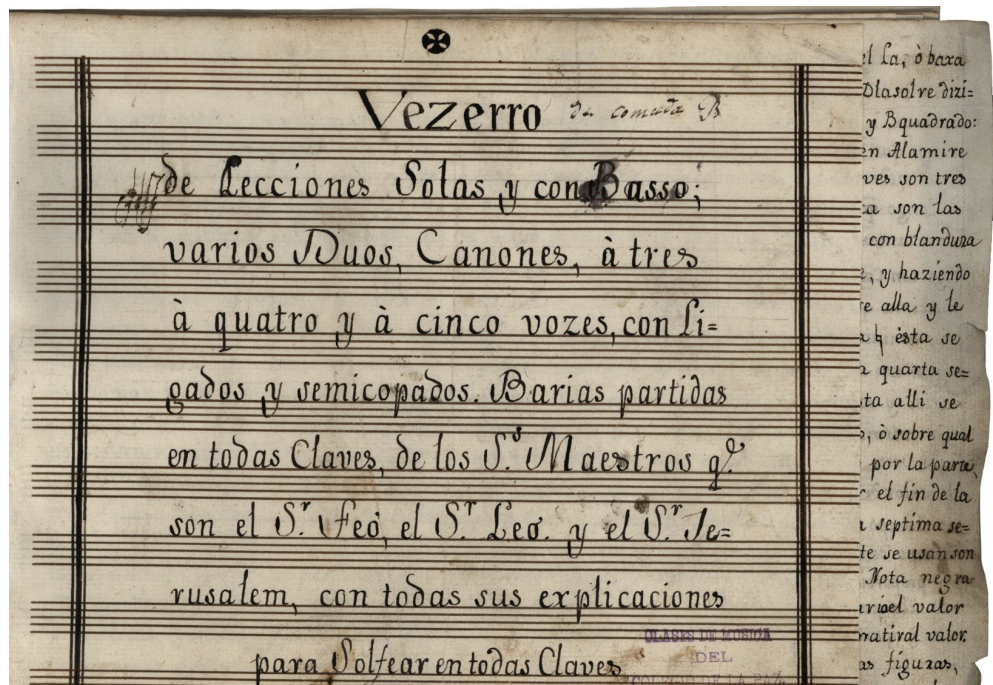 Vezerro de comeda B
de Lecciones Solas y con Basso;
varios Duos, Canones, à tres
à quatro y à cinco vozes, con li=
gados y semicopados. Barias partidas
en todas Claves, de los S.s Maestros q.e
son el S.r Feo, el S.r Leo. y el S.r Je=
rusalem, con todas sus explicaciones
para Solfear en todas Claves
CLASES DE MUSICA
DEL
COLEGIO DE LA PAZ.
el La, ò baxa
Dlasolre dizi=
y Bquadrado:
en Alamire
ves son tres
a son las
con blandura
, y haziendo
e alla y le
a ♮ ésta se
a quarta se=
ta alli se
, ò sobre qual
por la parte,
r el fin de la
a septima se=
te se usan son
Nota negra
el valor
natiral valor.
as figuras,